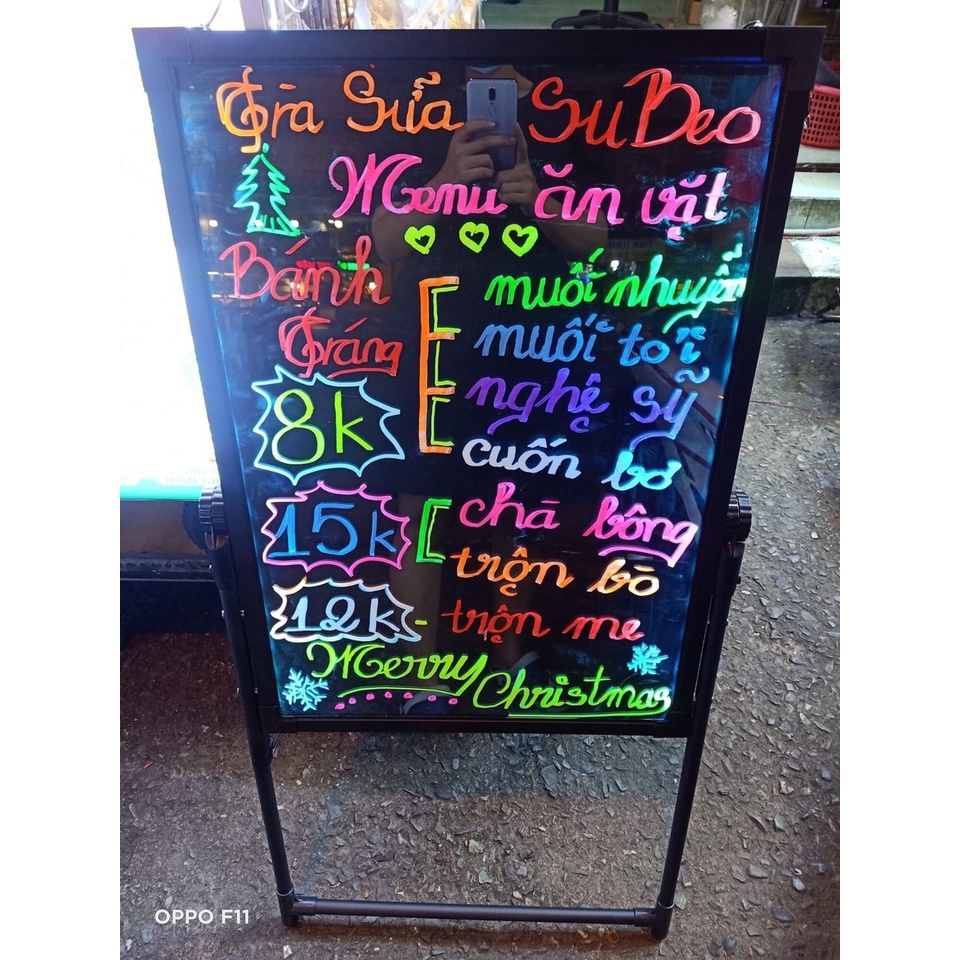 Trà Sữa SuBeo
Menu ăn vặt
Bánh Tráng
8k
muối nhuyễn
muối tỏi
nghệ sỹ
cuốn bơ
15k
chà bông
trộn bò
12k - trộn me
Merry Christmas
OPPO F11